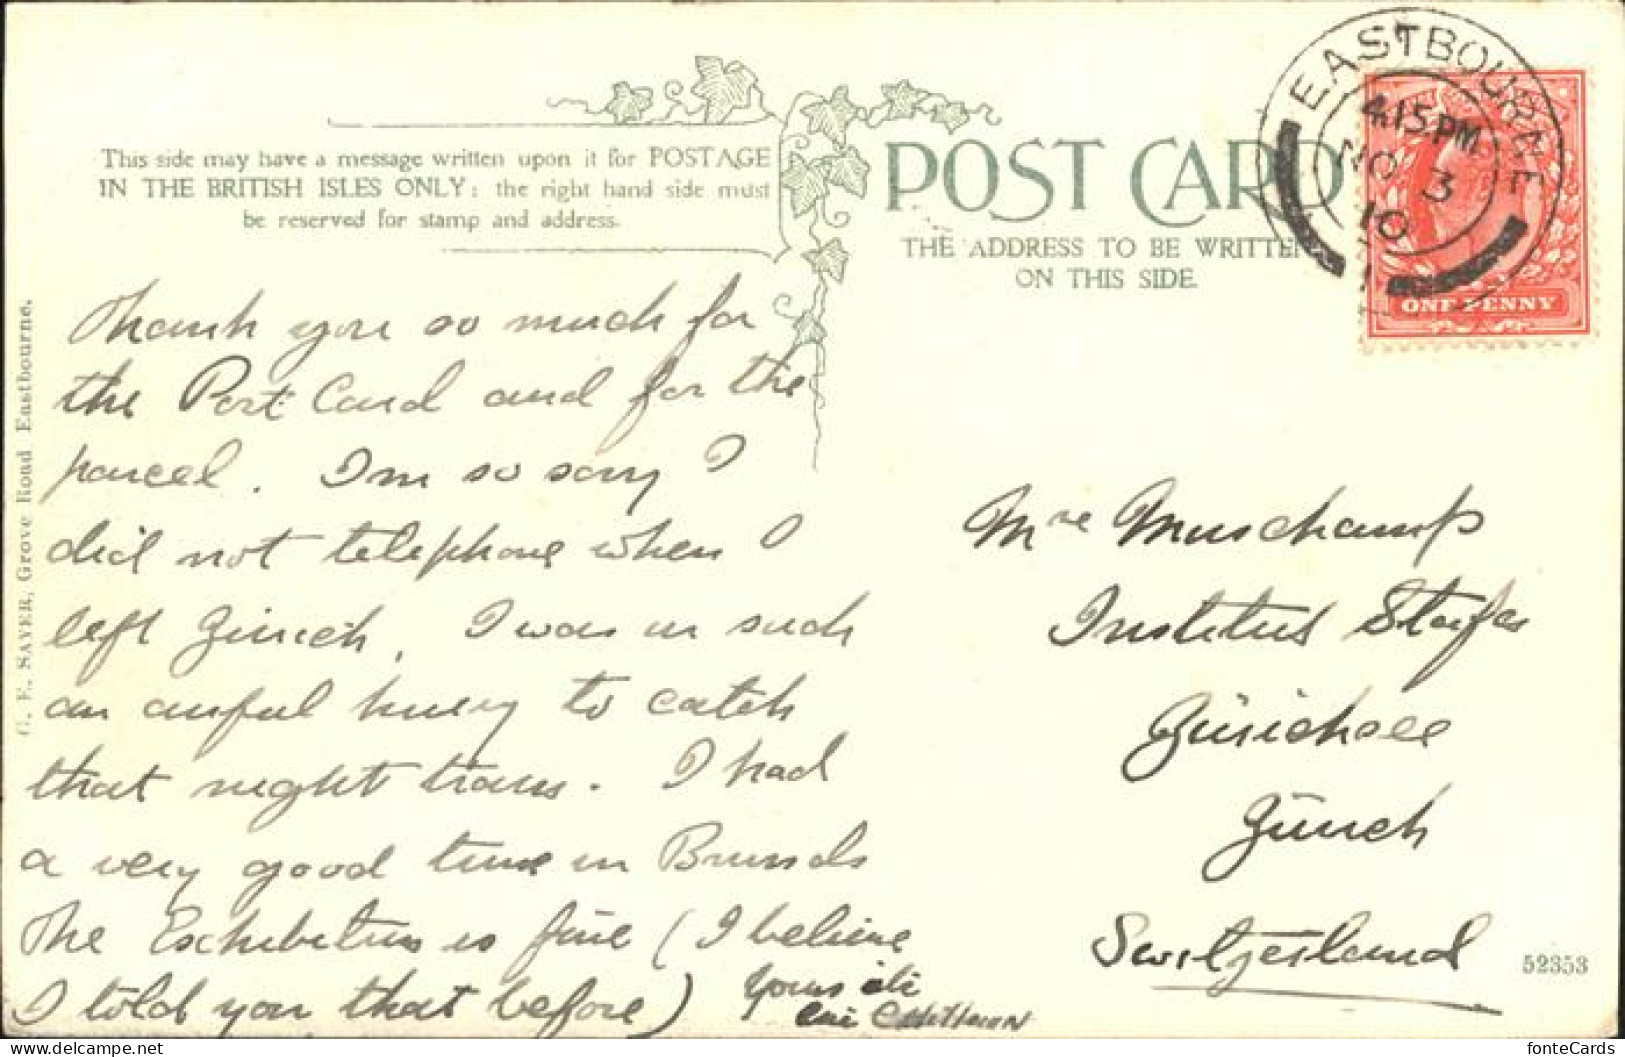 This side may have a message written upon it for POSTAGE
IN THE BRITISH ISLES ONLY: the right hand side must
be reserved for stamp and address.
POST CARD
THE ADDRESS TO BE WRITTEN
ON THIS SIDE.
EASTBOURNE
4.15 PM
NO 3
10
ONE PENNY
G. F. SAYER, Grove Road Eastbourne.
Thank you so much for
the Post Card and for the
parcel. I'm so sorry I
did not telephone when I
left Zürich, I was in such
an awful hurry to catch
that night train. I had
a very good time in Brussels
The Exhibition is fine (I believe
I told you that before)
Yours etc
Muschamp
Institut
Zürichsee
Zürich
Switzerland
52353
fonteCards